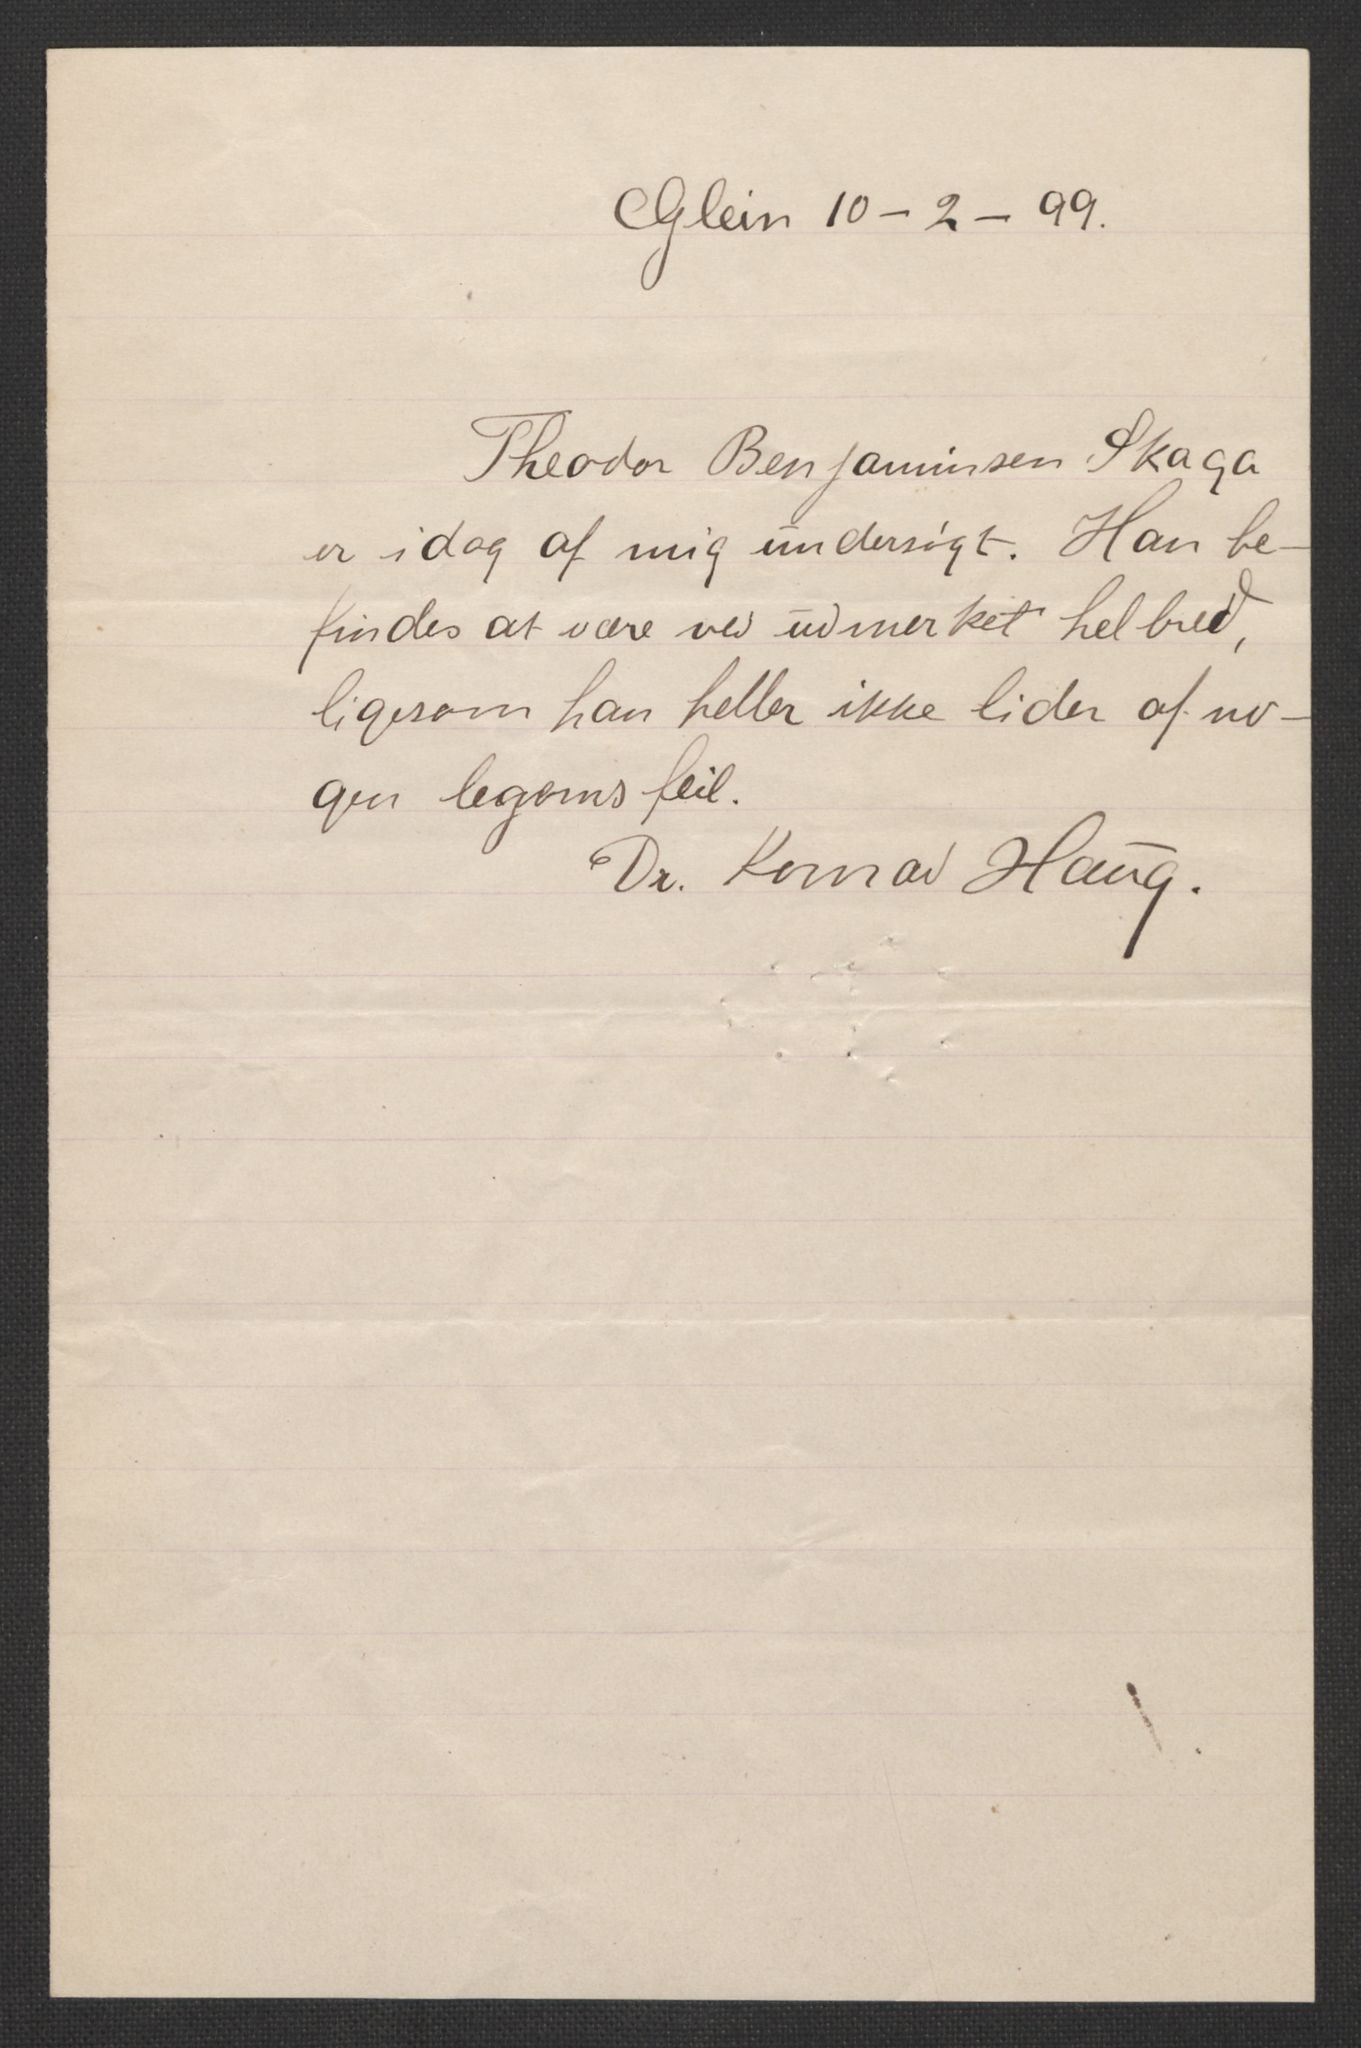 Glein 10 – 2 – 99.
Theodor Benjaminsen Skaga
er idag af mig undersøgt. Han be-
findes at være ved udmerket helbred,
ligesom han heller ikke lider af no-
gen legemsfeil.
Dr. Konrad Haug.